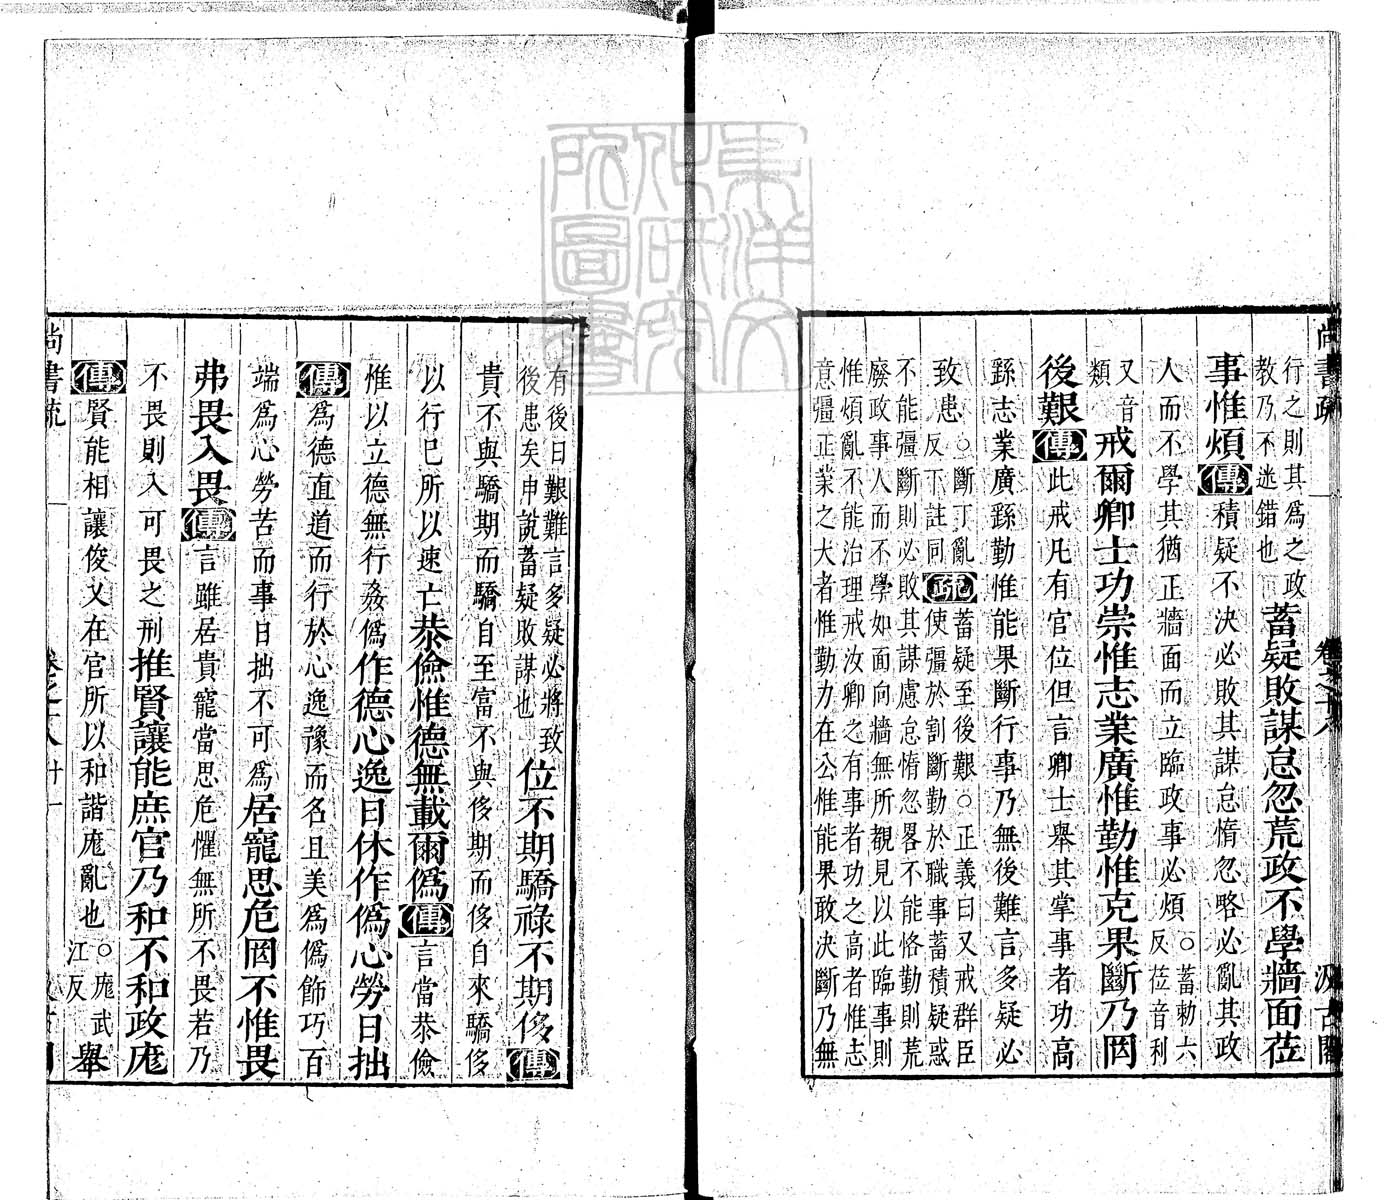 尚書疏 卷之十八 汲古閣
行之則其為之政
教乃不迷錯也
蓄疑敗謀怠忽荒政不學牆面莅
事惟煩傳積疑不決必敗其謀怠惰忽略必亂其政
人而不學其猶正牆面而立臨政事必煩○蓄勑六反莅音利
又音類
戒爾卿士功崇惟志業廣惟勤惟克果斷乃罔
後艱傳此戒凡有官位但言卿士舉其掌事者功高
繇志業廣繇勤惟能果斷行事乃無後難言多疑必
致患○斷丁亂反下註同疏蓄疑至後艱○正義曰又戒群臣
使彊於割斷勤於職事蓄積疑惑
不能彊斷則必敗其謀慮怠惰忽畧不能恪勤則荒
廢政事人而不學如面向牆無所觀見以此臨事則
惟煩亂不能治理戒汝卿之有事者功之高者惟志
意彊正業之大者惟勤力在公惟能果敢決斷乃無
有後日艱難言多疑必將致
後患矣申說蓄疑敗謀也
位不期驕祿不期侈傳
貴不與驕期而驕自至富不與侈期而侈自來驕侈
以行己所以速亡恭儉惟德無載爾偽傳言當恭儉
惟以立德無行姦偽作德心逸日休作偽心勞日拙
傳為德直道而行於心逸豫而名且美為偽飾巧百
端為心勞苦而事日拙不可為居寵思危罔不惟畏
弗畏入畏傳言雖居貴寵當思危懼無所不畏若乃
不畏則入可畏之刑推賢讓能庶官乃和不和政厖
傳賢能相讓俊乂在官所以和諧厖亂也○厖武江反舉
尚書疏 卷之十八 廿一
東洋文化研究所圖書